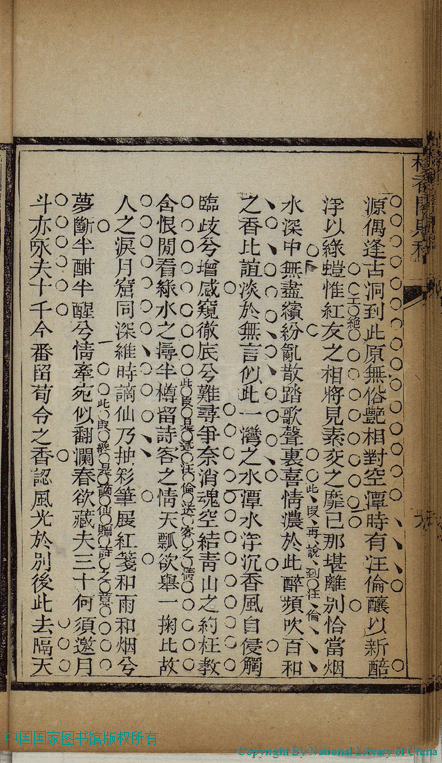 源偶逢古洞到此原無俗艷相對空潭時有汪倫釀以新醅
浮以綠螘惟紅友之相將見素交之靡已那堪離別恰當烟
水深中無盡繽紛亂散踏歌聲裏喜情濃於此醉頻吹百和
之香比誼淡於無言似此一灣之水潭水浮沉香風自侵觸
臨歧兮增感窺徹底兮難尋爭奈消魂空結青山之約枉教
含恨閒看綠水之潯半樽留詩客之情天瓢欲舉一掬比故
人之淚月窟同深維時謫仙乃抽彩筆展紅箋和雨和烟兮
夢斷半酣半醒兮情牽宛似翻瀾春欲藏夫三十何須邀月
斗亦永夫十千今番留荀令之香認風光於別後此去隔天
工絕
此段再說到汪倫
此段是從汪倫送客之情
此段總是謫仙贈詩之意
中国国家图书馆版权所有
Copyright By National Library of China